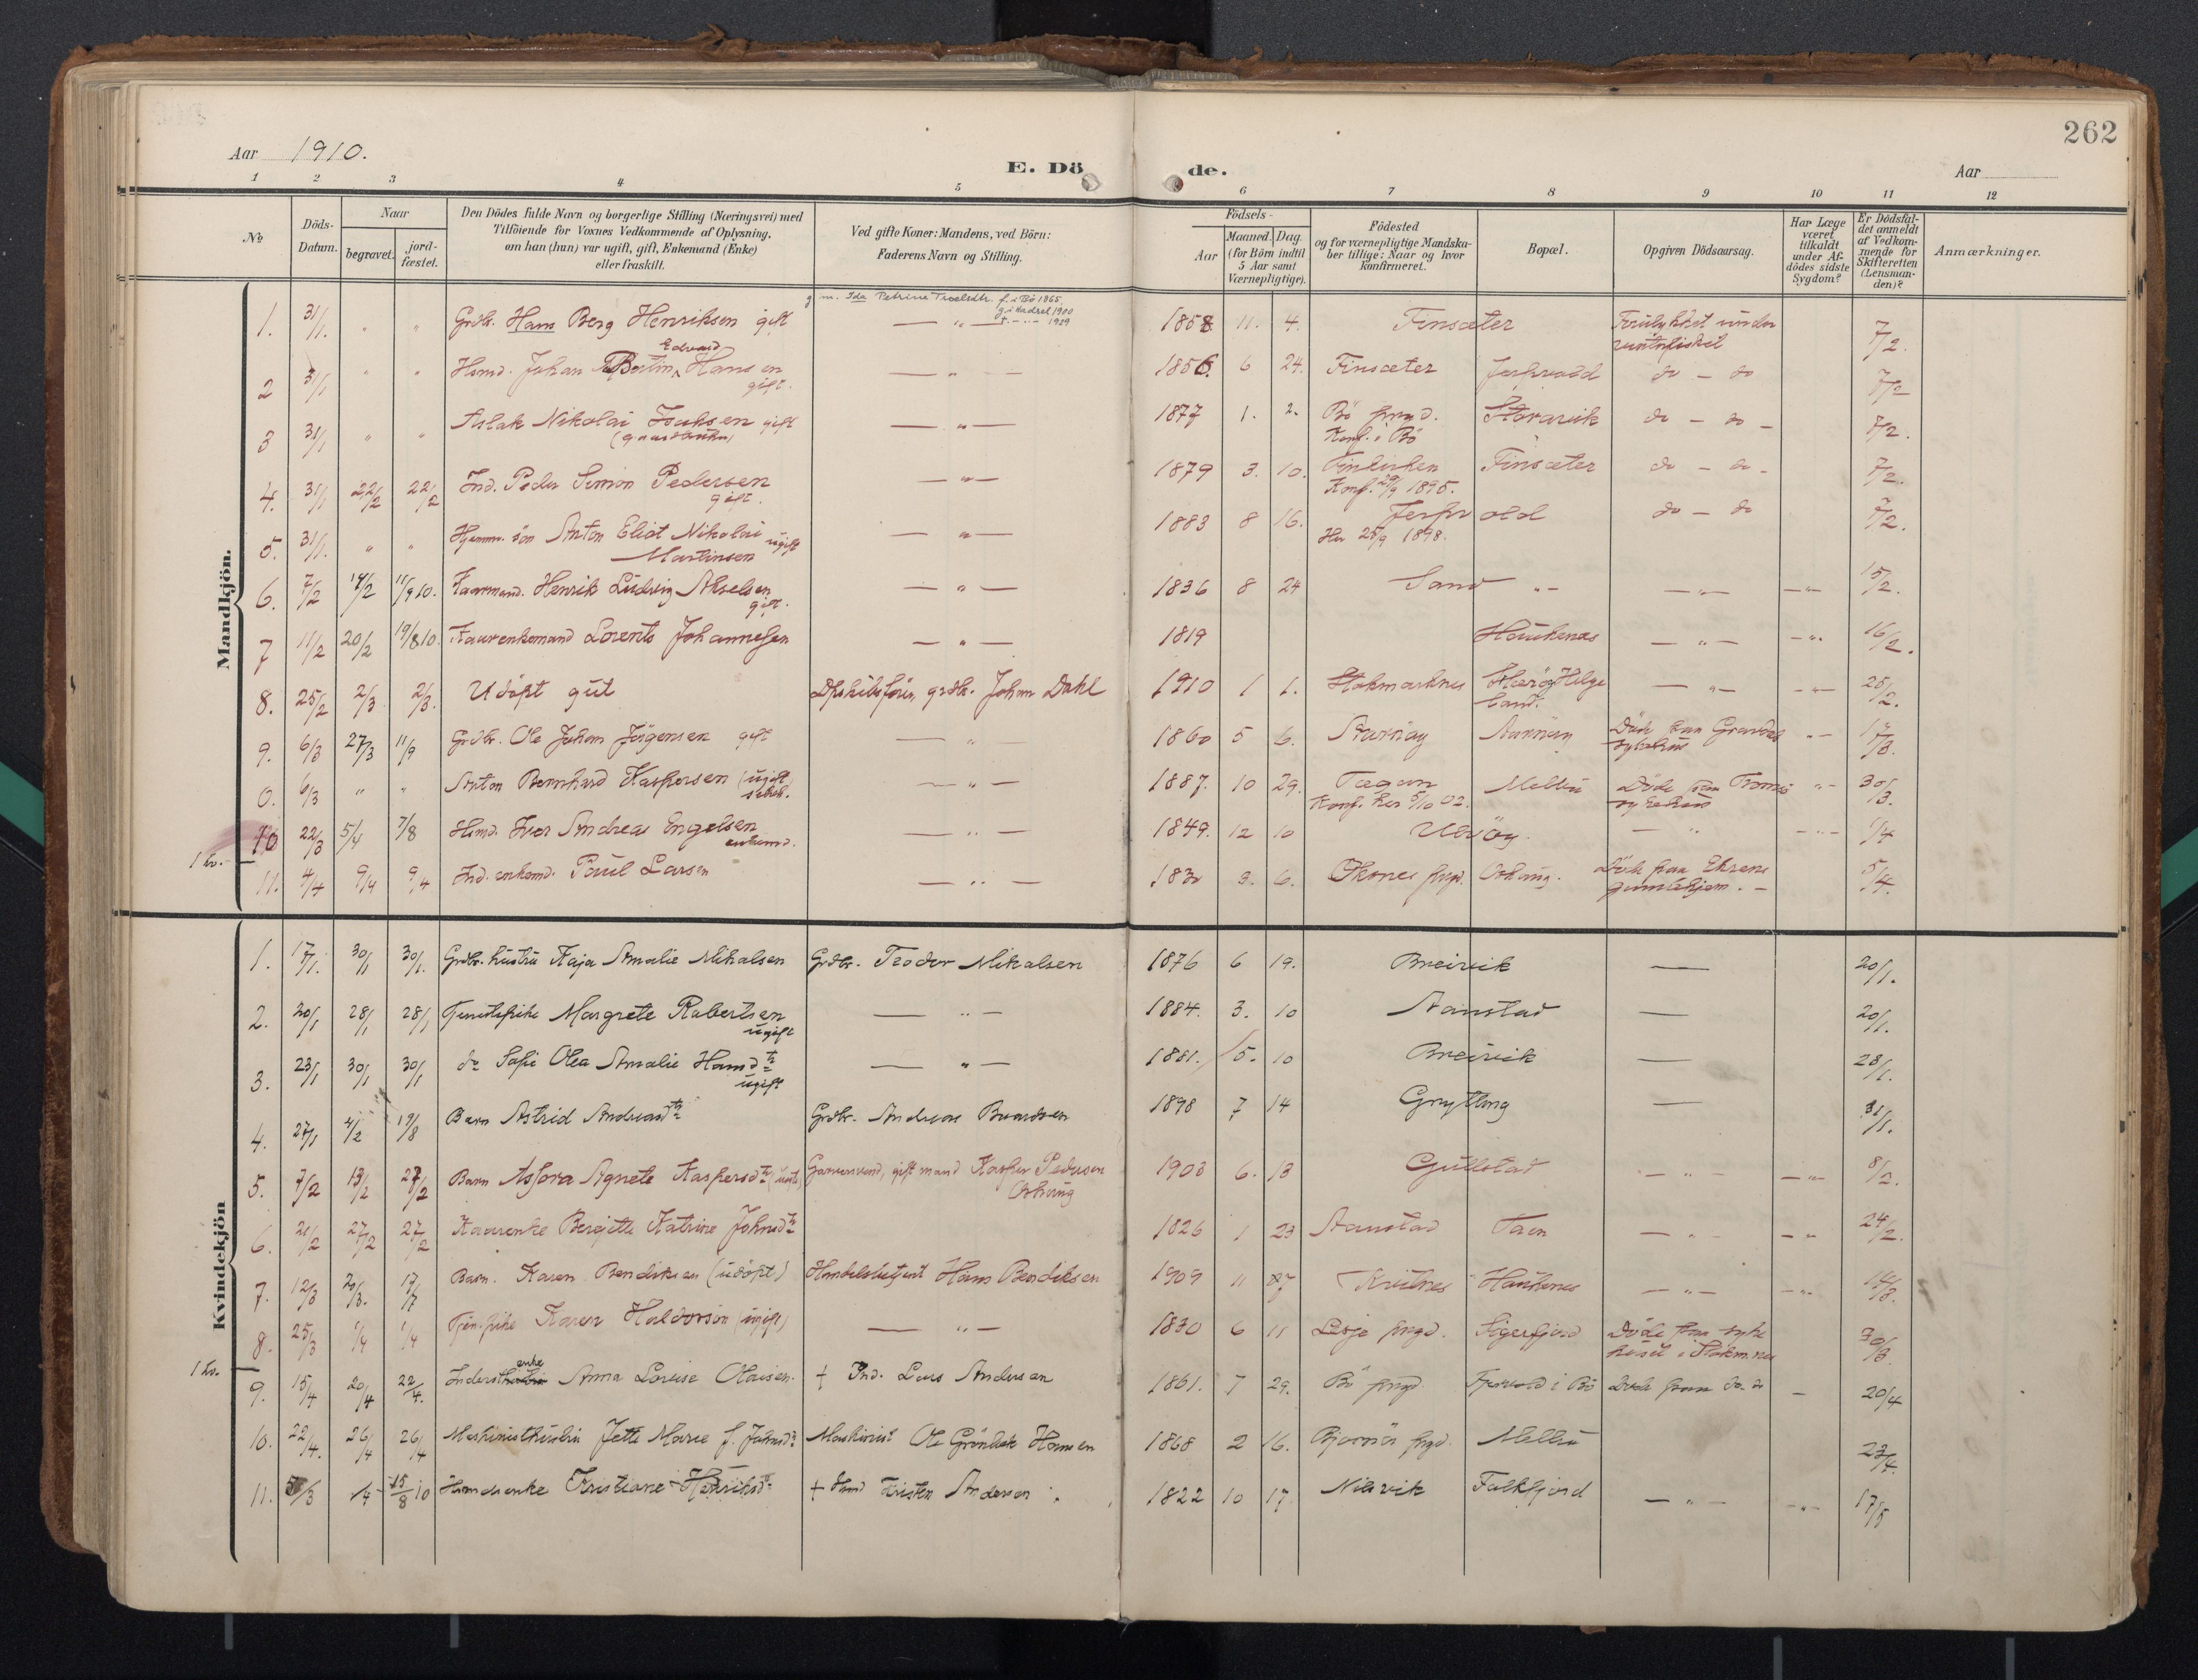 262
Aar 1910.
E. Dö de.
Aar
1 2 3 4 5 6 7 8 9 10 11 12
No
Döds-Datum.
Naar
begravet.
jord-fæstet.
Den Dödes fulde Navn og borgerlige Stilling (Næringsvei) med
Tilföiende for Voxnes Vedkommende af Oplysning,
om han (hun) var ugift, gift, Enkemand (Enke)
eller fraskilt.
Ved gifte Koner: Mandens, ved Börn:
Faderens Navn og Stilling.
Födsels-
Aar
Maaned. Dag.
(for Börn indtil
5 Aar samt
Værnepligtige).
Födested
og for værnepligtige Mandska-
ber tillige: Naar og hvor
konfirmeret.
Bopæl.
Opgiven Dödsaarsag.
Har Læge
været
tilkaldt
under Af-
dödes sidste
Sygdom?
Er Dödsfal-
det anmeldt
af Vedkom-
mende for
Skifteretten
(Lensman-
den)?
Anmærkninger.
Mandkjön.
g. m. Ida Petrine Troelsdtr. f. i Bö 1865
g. i Hadsel 1900
+ - " - 1929
1. 31/1. " " Grdbr. Hans Berg Henriksen gift — " — 1858 11. 4. Finsæter Forulykket under 7/2.
vinterfisket
2 31/1 " " Hsmd. Johan Bertin Edvard Hansen — " — 1856. 6 24. Finsæter Jerfvold do - do 7/2
gift.
3 31/1 " " Aslak Nikolai Isaksen gift — " — 1877 1. 2. Bö prgd. Skorarvik do - do - 7/2.
(gaardbruker) Konf. i Bö
4. 31/1 22/2 22/2 Ind. Peder Simon Pedersen — " — 1879 3. 10. Finsæter do - do - 7/2.
gift. Konf. 29/9 1895.
5. 31/1. " " Hjemmev. sön Anton Eliot Nikolai ugift — " — 1883 8 16. Jerfvold do - do 7/2.
Martinsen Her 25/9 1898.
6. 7/2 14/2 11/9 10. Kaarmand. Henrik Ludvig Akselsen — " — 1836 8 24 Sand " - — " — - " - 15/2.
gift.
7 11/2 20/2 19/8 10. Kaarenkemand Lorents Johannesen — " — 1819 Haukenes — " — - " - 16/2.
8. 25/2 2/3 2/3. Udöpt gut Dpskibsförer, grdbr. Johan Dahl 1910 1 1. Stokmarknes Herö Helge — " — - " - 25/2.
land.
9. 6/3 27/3 11/9 Grdbr. Ole Johan Jörgensen gift — " 1860 5 6. Aunöay Aunöay Död paa Gravdal " - 17/3.
sykehus
0. 6/3 " " Anton Bernhard Kaspersen (ugift — " — 1887. 10 29. Tagan Melbu Döde paa Tromsö " - 30/3.
Konf. her 5/10 02. sykehus
10 22/3 5/4 7/8 Hsmd. Iver Andreas Engelsen — " — 1849. 12 10 Ulvöy. — " - " - 1/4
enkemd.
1 kv.
11. 4/4 9/4 9/4 Ind. enkemd. Paul Larsen — " — 1830 9. 6. Öksnes prgd. Död paa 5/4.
gamlehjem. -
Kvindekjön
1. 17/1. 30/1 30/1. Grdbr. hustru Kaja Amalie Mikalsen Grdbr. Teodor Mikalsen 1876 6 19. Breivik — 20/1.
2. 20/1 28/1 28/1 Tjenestepike Margrete Robertsen — " — 1884. 3. 10 Aanstad — 20/1.
ugift
3. 23/1 30/1 30/1 do Sofie Olea Amalie Hansdtr — " — 1881. 5. 10 Breivik — 28/1.
ugift
4. 27/1 4/2 19/8 Barn Astrid Andreasdtr Grdbr. Andreas Baardsen 1898 7 14 Grytting — 31/1.
5. 7/2 13/2 27/2 Barn Asfora Agnete Kaspersdtr (uægte) gift mand Kasper Pedersen 1903 6. 13 Gullstad - " - - " - 8/2.
6. 21/2 27/2 27/2 Kaarenke Bergitte Katrine Johnsdtr 1826 1 23 Aanstad Taen — " - - " 24/2.
7. 12/3 20/3. 17/7 Barn. Karen Bendiksen (udöpt) Handelsbetjent Hans Bendiksen 1909 11 27 Kvitnes Haukenes — " — - " - 14/3.
8. 25/3 1/4 1/4 Tjen. pike Karen Haldorsön (ugift) — " — 1830 6 11 Lesje prgd. Sigerfjord Döde paa syke 30/3.
huset i Stokmnes
1 kv.
9. 15/4 20/4 22/4. Inderstenke Anna Lovise Olaisen. + Ind. Lars Andersen 1861. 7 29. Bö prgd. i Bö Döde paa do. do - 20/4
10. 22/4. 26/4 26/4 Maskinisthustru Jette Marie f. Johnsdtr Maskinist Ole Grönbek Hansen 1868 2 16. prgd. Melbu 23/4.
11. 5/3 /4 15/8 10 Hsmdsenke Kristiane Henriksdtr + Hsmd Kristen Andersen 1822 10 17 Nilsvik Falkfjord — " — - " - 17/5